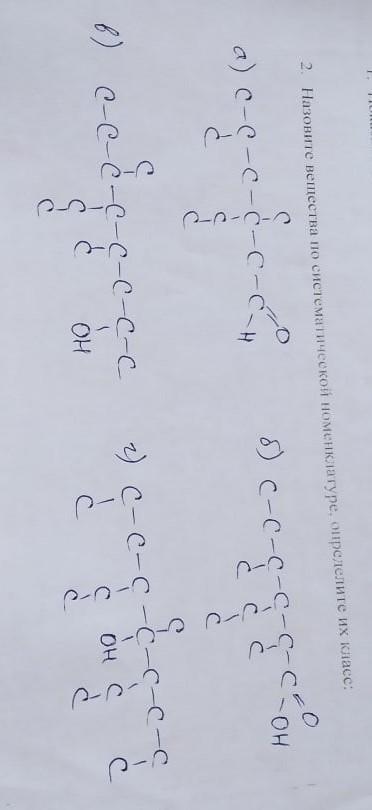 2. Назовите вещества по систематической номенклатуре, определите их класс:
C O
а) C – C – C – C – C – C – H
C C
C
O
б) C – C – C – C – C – C – OH
C C C
C
C
в) C – C – C – C – C – C – C – C
C C OH
C
C
г) C – C – C – C – C – C – C
C C OH C C
C C